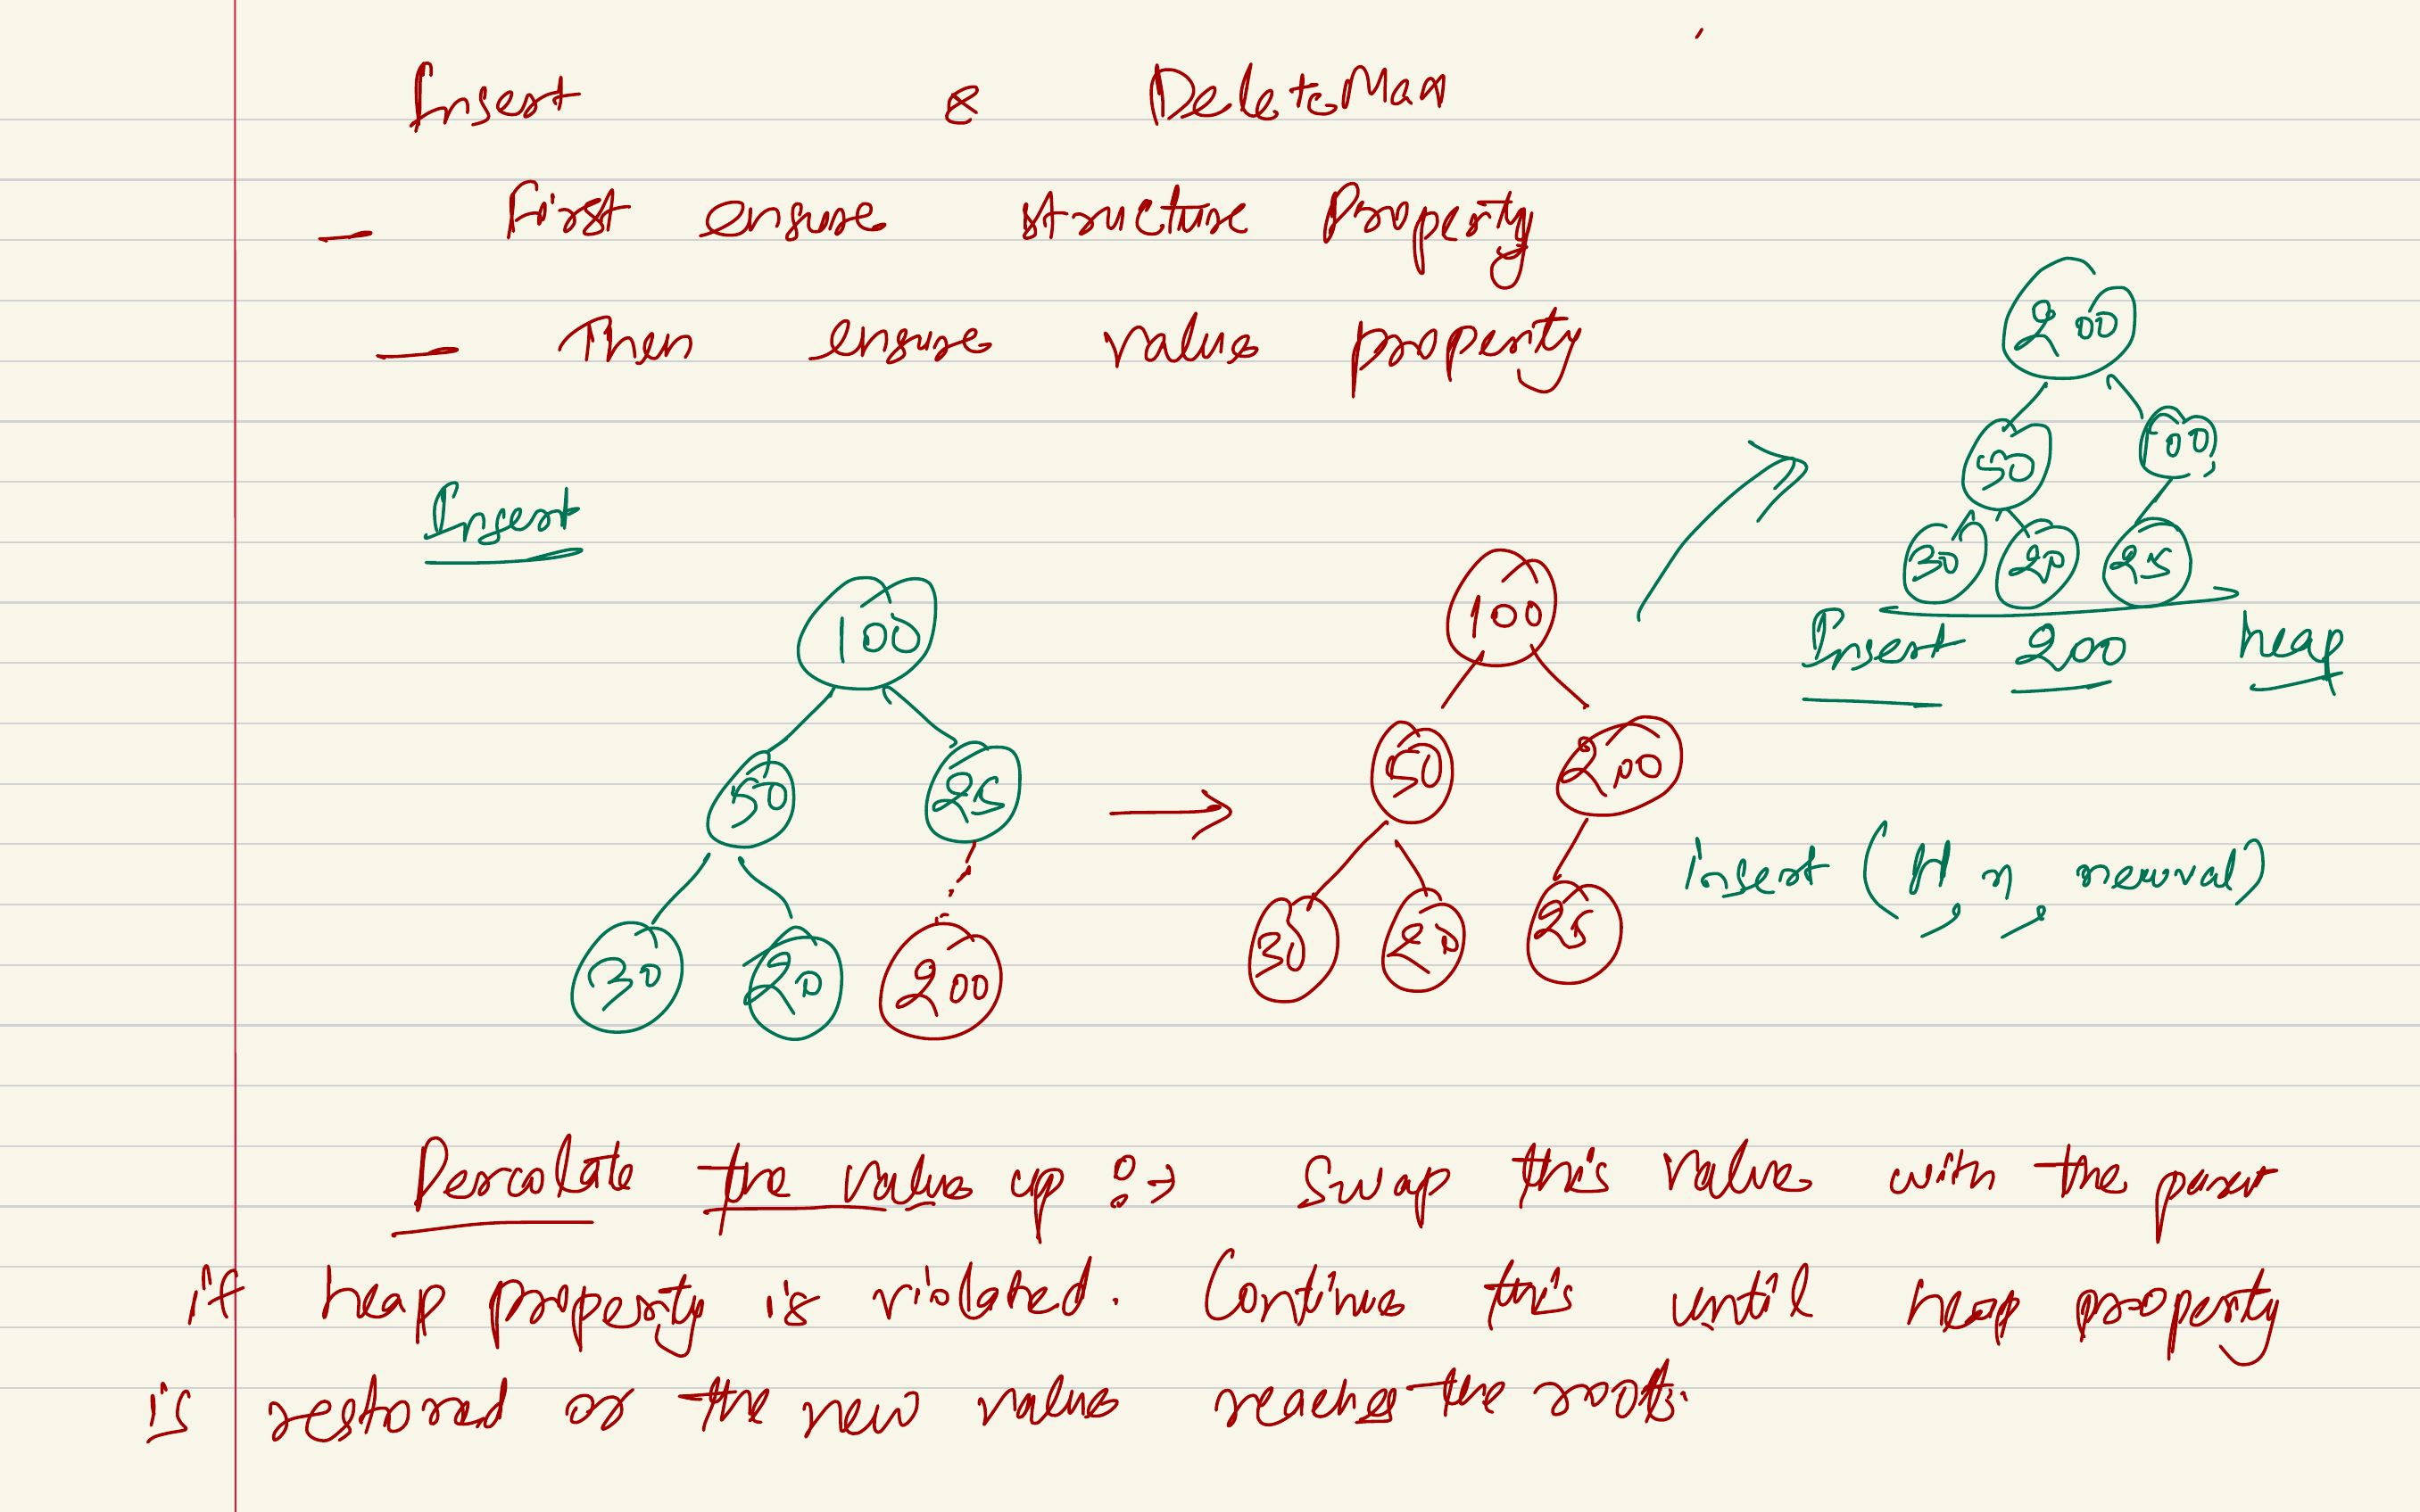 Insert & DeleteMax
- First ensure structure Property
- Then ensure value property
200
50 100
30 20 25
Insert 200 heap
Insert
100
50 25
30 20 200
100
50 200
30 20 25
insert (H, n, newval)
Percolate the value up :→ Swap this value with the parent
if heap property is violated. Continue this until heap property
is restored or the new value reaches the root.